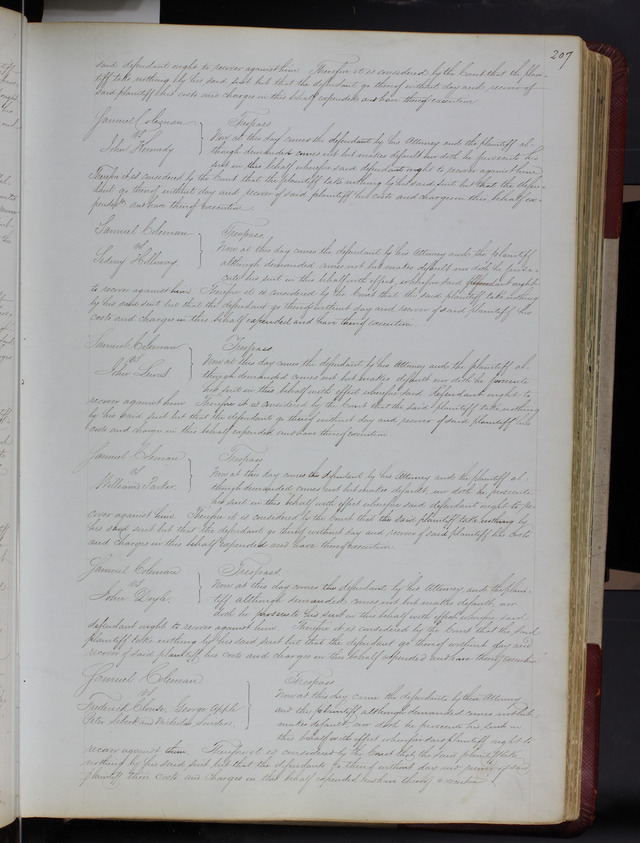 207
said defendant ought to recover against him Therefore it is considered by the Court that the plain-
tiff take nothing by his said suit but that the defendant go thereof without day and recover of
said plaintiff his costs and charges in this behalf expended and have thereof execution
Samuel Coleman
vs
John Kennedy
Trespass
Now at this day comes the defendant by his Attorney and the plaintiff al-
though demanded comes not but makes default nor doth he prosecute his
suit in this behalf wherefore said defendant ought to recover against him
Therefore it is considered by the Court that the plaintiff take nothing by his said suit but that the defen-
dant go thereof without day and recover of said plaintiff his costs and charges in this behalf ex-
pended and have thereof execution
Samuel Coleman
vs
Sidney Holloway
Trespass
Now at this day comes the defendant by his Attorney and the plaintiff
although demanded comes not but makes default nor doth he prose-
cute his suit in this behalf with effect, wherefore said defendant ought
to recover against him Therefore it is considered by the Court that the said plaintiff take nothing
by his said suit but that the defendant go thereof without day and recover of said plaintiff his
costs and charges in this behalf expended and have thereof execution
Samuel Coleman
vs
John Lewis
Trespass
Now at this day comes the defendant by his Attorney and the plaintiff al-
though demanded comes not but makes default nor doth he prosecute
his suit in this behalf with effect wherefore said defendant ought to
recover against him Therefore it is considered by the Court that the said plaintiff take nothing
by his said suit but that the defendant go thereof without day and recover of said plaintiff his
costs and charge in this behalf expended and have thereof execution
Samuel Coleman
vs
William Parker
Trespass
Now at this day comes the defendant by his Attorney and the plaintiff al-
though demanded comes not but makes default, nor doth he prosecute
his suit in this behalf with effect wherefore said defendant ought to re-
cover against him Therefore it is considered by the Court that the said plaintiff take nothing by
his said suit but that the defendant go thereof without day and recover of said plaintiff his costs
and charges in this behalf expended and have thereof execution
Samuel Coleman
vs
John Doyle
Trespass
Now at this day comes the defendant by his Attorney and the plain-
tiff although demanded comes not but makes default, nor
doth he prosecute his suit in this behalf with effect wherefore said
defendant ought to recover against him Therefore it is considered by the Court that the said
plaintiff take nothing by his said suit but that the defendant go thereof without day and
recover of said plaintiff his costs and charges in this behalf expended and have thereof execution
Samuel Coleman
vs
Frederick George Apple
Peter and Nicholas
Trespass
Now at this day came the defendants by their Attorney
and the plaintiff although demanded comes not but
makes default nor doth he prosecute his suit in
this behalf with effect wherefore said plaintiff ought to
recover against them Therefore it is considered by the Court that the said plaintiff take
nothing by his said suit but that the defendants go thereof without day and recover of said
plaintiff their costs and charges in this behalf expended and have thereof execution